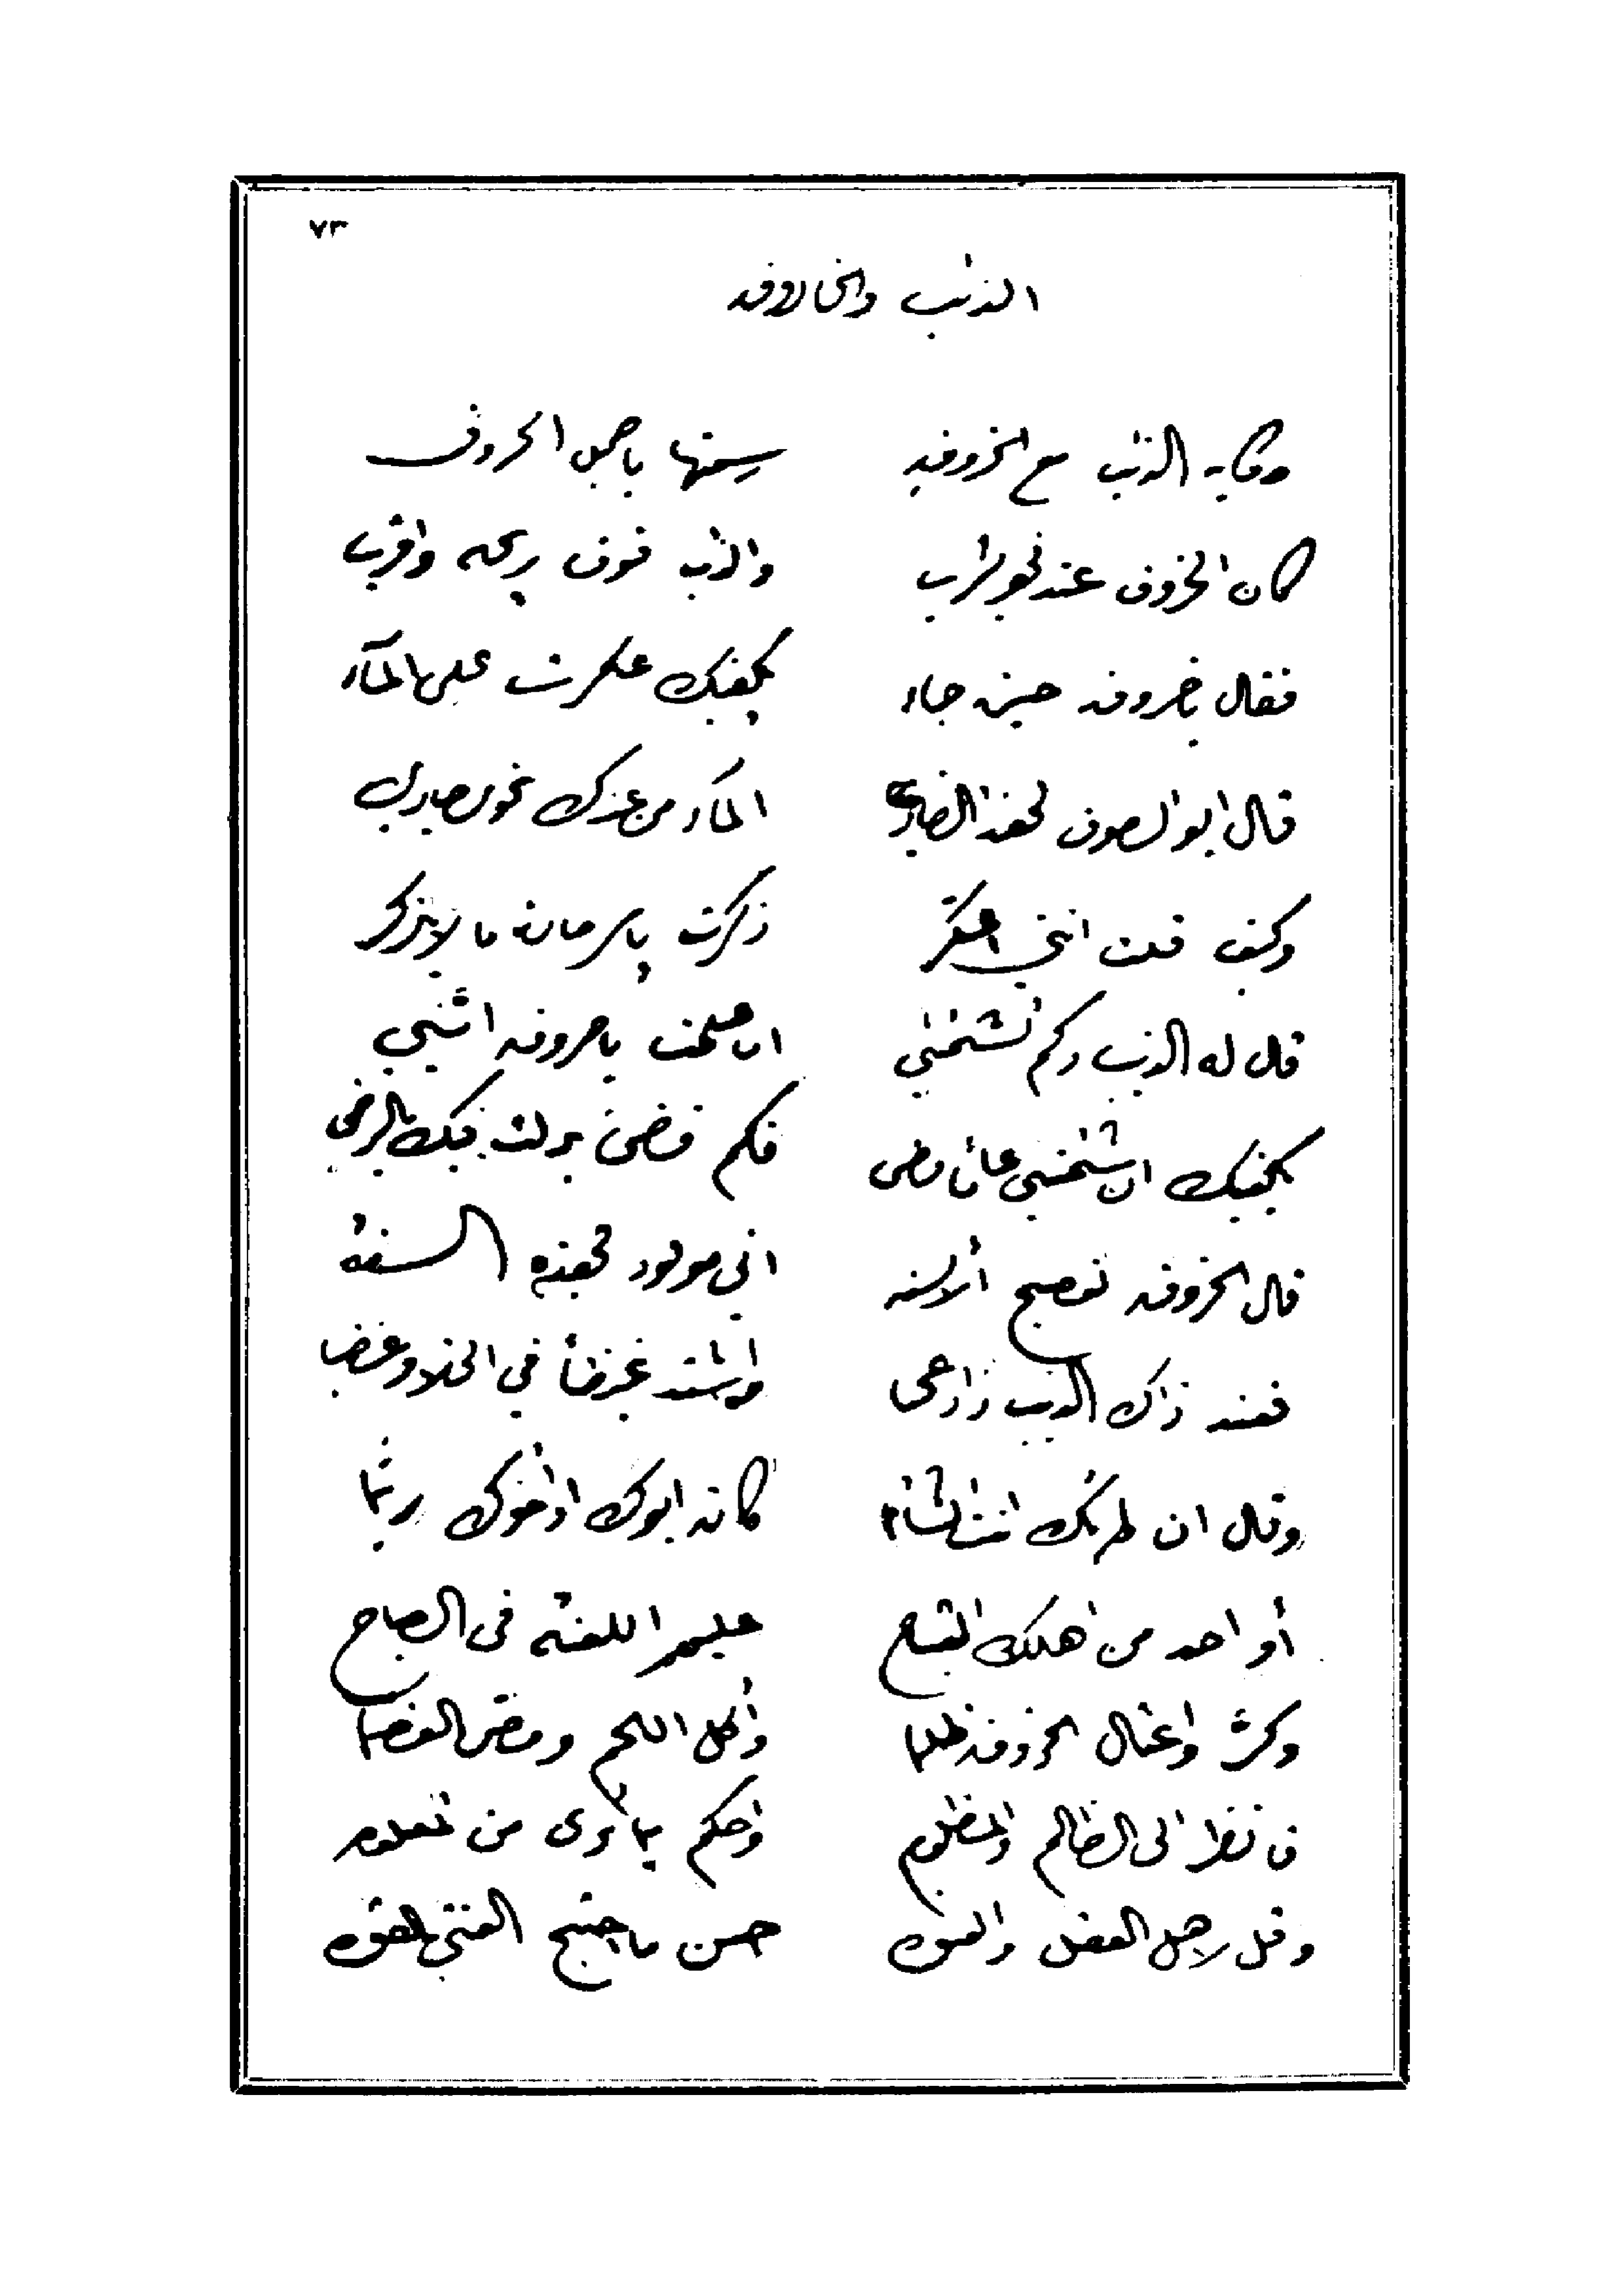 ٧٣
الذئب والخاروف
حكاية الذئب مع الخروف سمعتها يا جميل الحروف
كان الخروف عند نهر يشرب والذئب فوق ريحه واقرب
فقال يا خروف حين جاء يكفيك عكرت على الماء
قال ابو الصوف لهذا الضاري الماء من عندك نحوي جاري
وكيف قلت انني اعكر ذكرت يا سرحان ما لا يذكر
قال له الذئب وكم تشتمني ان صلحت يا خروف اثني
يكفيك ان شتمتني عاما مضى فكم فضى فيك بالرضى
قال الخروف تفصيح الالسنه اني مولود لهذه السنة
فعند ذاك الذئب زاد واشتد غيظا في الخلا وغضبا
وقال ان لم تك انت الشاتما كان ابوك او اخوك ربما
أو احد من اهلك القباح عليهم اللعنة في الصباح
وكرّ واغتال الخروف ظلما وأكل اللحم ومص العظما
فانظر الى الظالم والمظلوم واحكم بما ترى من المعلوم
وقل لاهل العقل والفتوه حسن ما احتج الفتى بالقوه